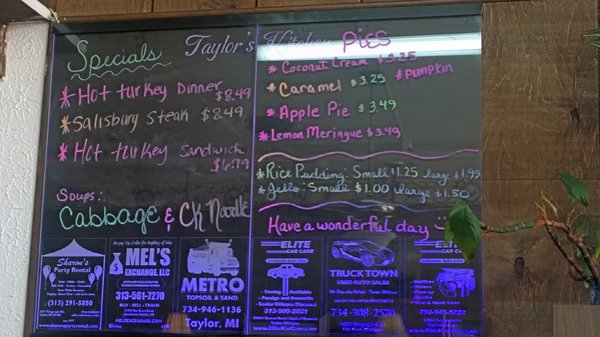 Taylor's Kitchen
Specials
* Hot turkey Dinner $8.49
* Salisbury Steak $8.49
* Hot turkey Sandwich $6.79
Soups:
Cabbage & CK Noodle
Pies
* Coconut Cream $3.25
* Caramel $3.25 * Pumpkin
* Apple Pie $3.49
* Lemon Meringue $3.49
* Rice Pudding: Small $1.25 large $1.99
* Jello: Small $1.00 large $1.50
Have a wonderful day
Sharon's
Party Rental
(313) 291-5850
MEL'S
EXCHANGE, LLC
313-561-7270
BUY - SELL - TRADE
METRO
TOPSOIL & SAND
734-946-1136
Taylor, MI
ELITE
CAR CARE
TRUCK TOWN
USED AUTO SALES
734-308-2570
ELITE
CAR CARE